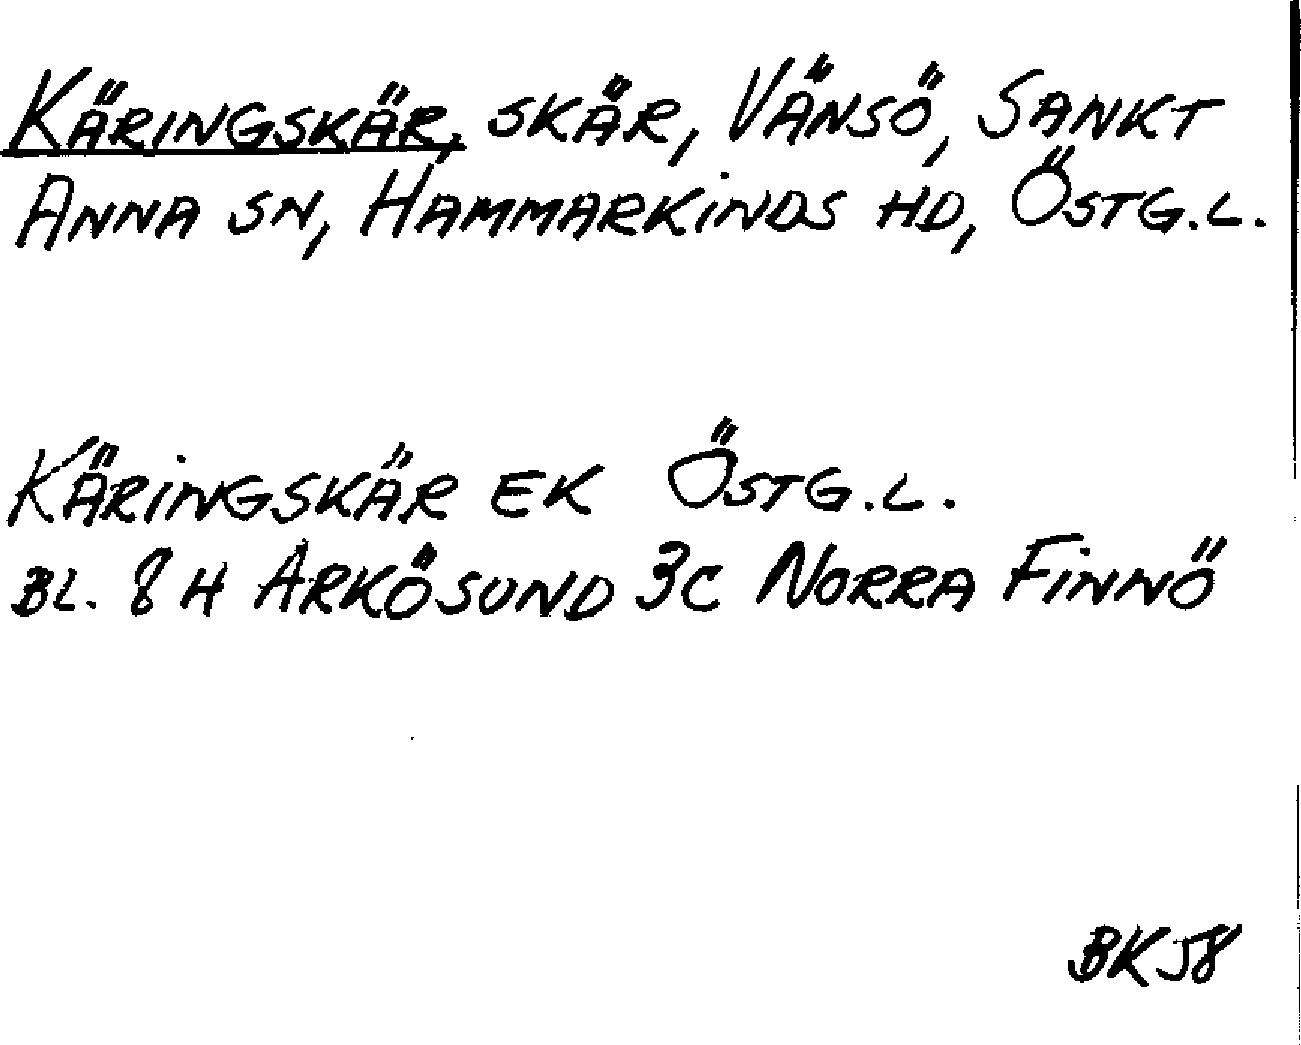 KÄRINGSKÄR, SKÄR, VÄNSÖ, SANKT
ANNA SN, HAMMARKINDS HD, ÖSTG.L.
KÄRINGSKÄR EK ÖSTG.L.
BL. 8 H ARKÖSUND 3C NORRA FINNÖ
BK 58